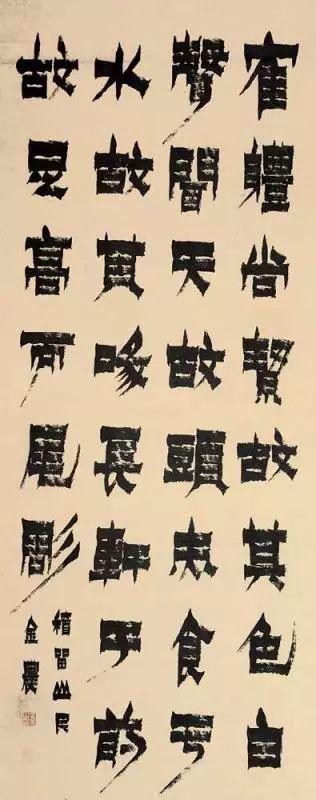 寉軆尚故其色白
聲聞天故頭赤食亏
水故其喙長軒于前
故足高而尾彫
稽留山民
金農